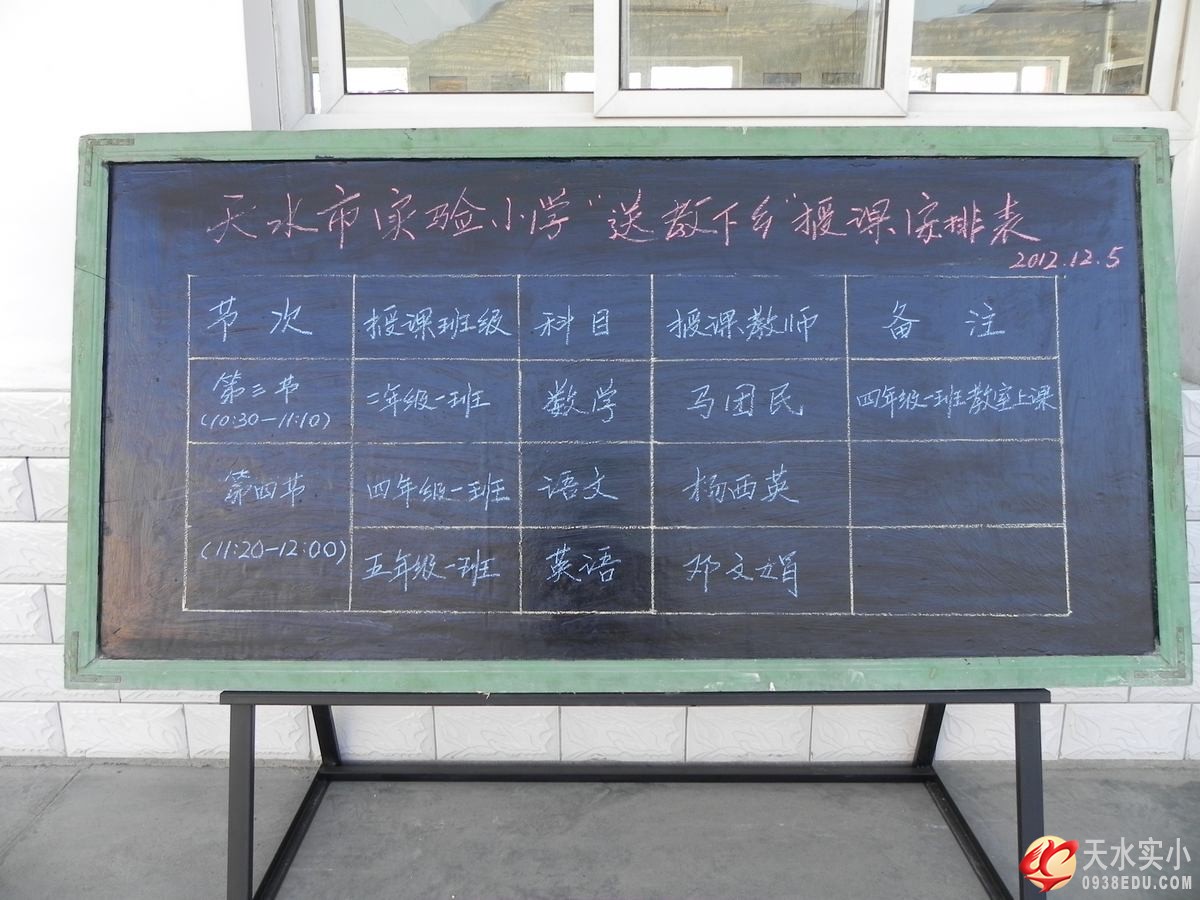 天水市实验小学"送教下乡"授课安排表
2012.12.5
节次 授课班级 科目 授课教师 备注
第三节 (10:30-11:10) 二年级一班 数学 马团民 四年级一班教室上课
第四节 (11:20-12:00) 四年级一班 语文 杨西英
五年级一班 英语 邓文娟
天水实小
0938EDU.COM